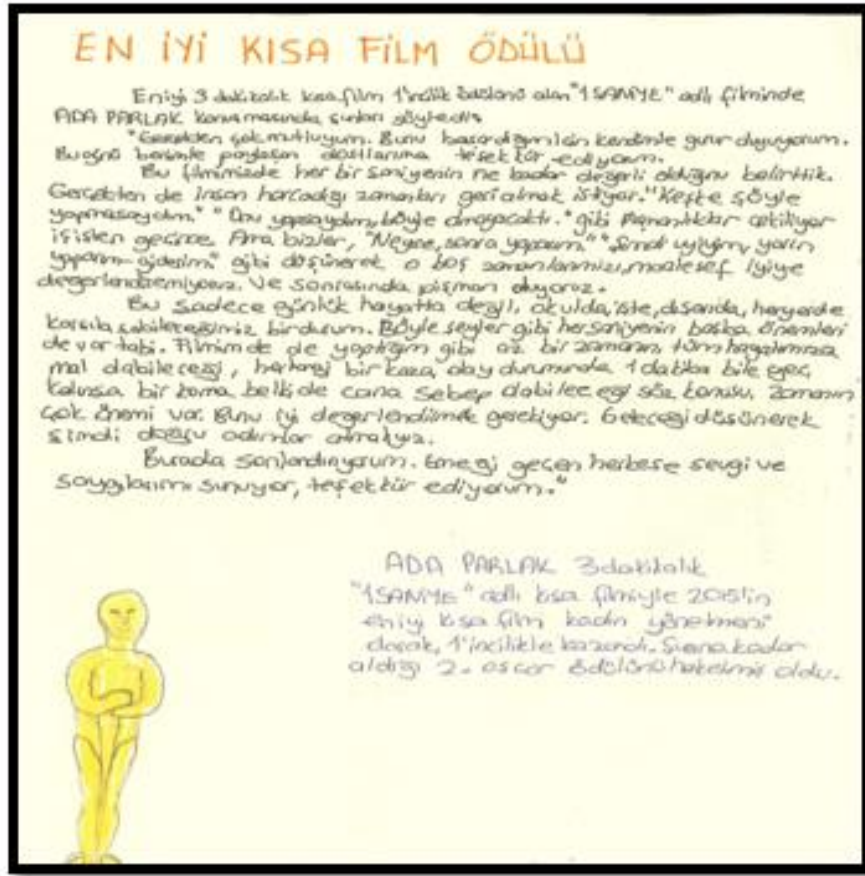 EN İYİ KISA FİLM ÖDÜLÜ
En iyi 3 dakikalık kısa film 1'incilik ödülünü alan "1 SANİYE" adlı filminde
ADA PARLAK konuşmasında şunları söyledi:
"Gerçekten çok mutluyum. Bunu başardığım için kendimle gurur duyuyorum.
Bu benimle paylaşan dostlarıma teşekkür ediyorum.
Bu filmimizde her bir saniyenin ne kadar değerli olduğunu belirttik.
Gerçekten de insan harcadığı zamanları geri almak istiyor. "Keşke şöyle
yapmasaydım." "Onu yapsaydım, böyle olmayacaktı." gibi pişmanlıklar çekiliyor
iş işten geçince. Ama bizler, "Neyse, sonra yaparım." "Şimdi uyuyım, yarın
yaparım giderim." gibi düşünerek o boş zamanlarımızı, maalesef iyiye
değerlendiremiyoruz. Ve sonrasında pişman oluyoruz.
Bu sadece günlük hayatta değil, okulda, işte, dışarıda, heryerde
karşıla şabileceğimiz bir durum. Böyle şeyler gibi her saniyenin başka önemleri
de var tabi. Filmimde de yaptığım gibi az bir zamanın tüm hayatımıza
mal olabileceği, herhangi bir kaza, olay durumunda 1 dakika bile geç
kalınsa bir koma belki de cana sebep olabileceği söz konusu. Zamanın
çok önemi var. Bunu iyi değerlendirmek gerekiyor. Geleceği düşünerek
şimdi doğru adımlar atmalıyız.
Burada sonlandırıyorum. Emeği geçen herkese sevgi ve
saygılarımı sunuyor, teşekkür ediyorum."
ADA PARLAK 3 dakikalık
"1 SANİYE" adlı kısa filmiyle 2015'in
en iyi kısa film kadın yönetmeni
olarak, 1'incilikle kazandı. Şuana kadar
aldığı 2. oscar ödülünü haketmiş oldu.